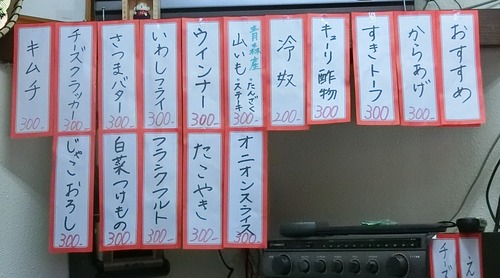 おすすめ
からあげ
300-
すきトーフ
300
キューリ酢物
300
冷奴
200-
青森産
山いも・たんざく
・ステーキ
300-
ウインナー
300
いわしフライ
300-
さつまバター
300-
チーズクラッカー
300-
キムチ
300-
オニオンスライス
300-
たこやき
300-
フランクフルト
300-
白菜つけもの
300-
じゃこおろし
300-
チーズ
え